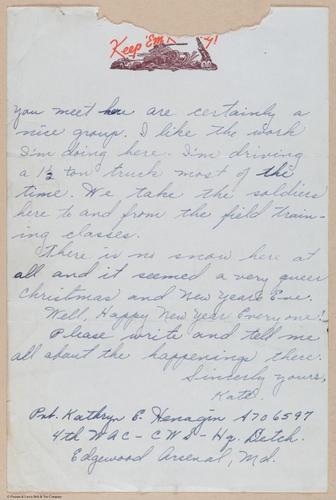 Keep 'Em
you meet here are certainly a
nice group. I like the work
I'm doing here. I'm driving
a 1½ ton truck most of the
time. We take the soldiers
here to and from the field train-
ing classes.
There is no snow here at
all and it seemed a very queer
Christmas and New Years Eve.
Well, Happy New Year Everyone!
Please write and tell me
all about the happenings there.
Sincerely yours,
Kate
Pvt. Kathryn E. Henagin A706597
4th WAC - CWS - Hq. Detch.
Edgewood Arsenal, Md.